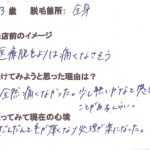 3歳 脱毛箇所: 全身
店前のイメージ
医療脱毛よりは痛くなさそう
けてみようと思った理由は？
全然痛くなかった。少し熱いかなと感じ
ことがあるくらい。
ってみて現在の心境
だんだんと毛が薄くなり処理が楽になった。